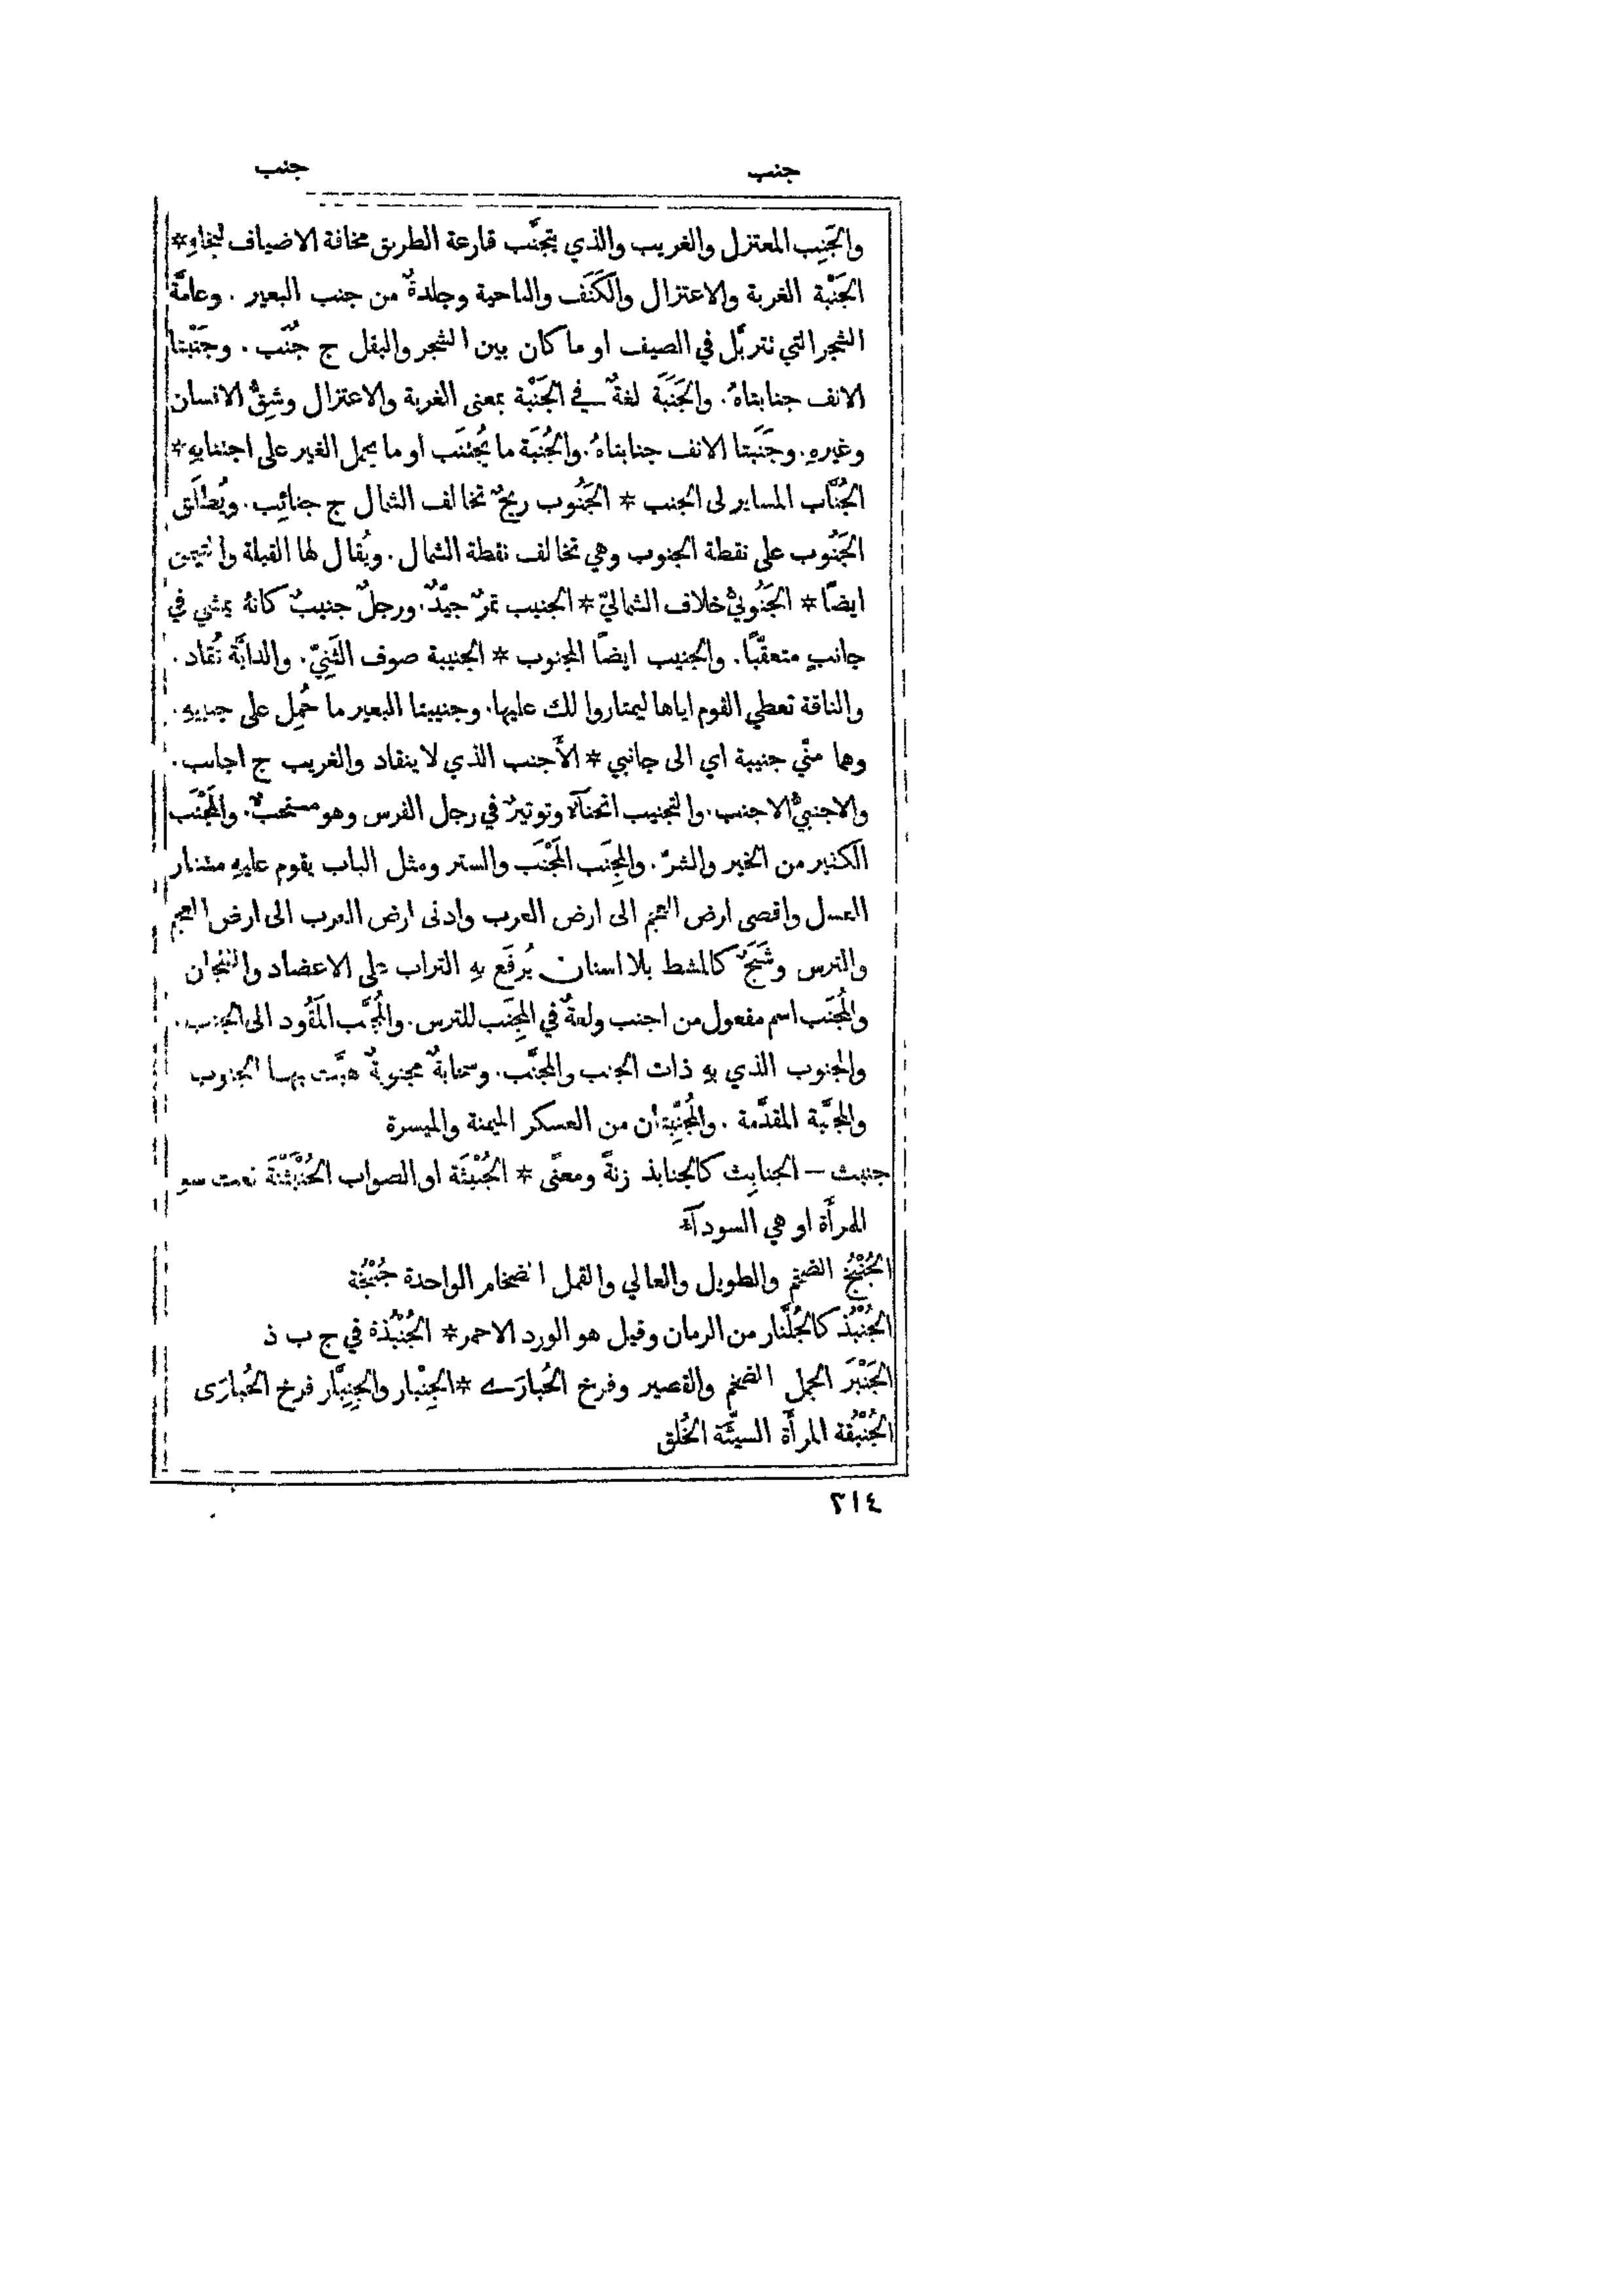 جنب
جنب
والجَنِب المعتزل والغريب والذي يتجنَّب قارعة الطريق مخافة الاضياف لبخلهِ *
الجَنْبة الغربة والاعتزال والكَنَف والناحية وجلدةٌ من جنب البعير . وعامَّة
الشجر التي تتربَّل في الصيف او ما كان بين الشجر والبقل ج جُنَب . وجَنْبتا
الانف جنابتاهُ. والجَنَبَة لغةٌ في الجَنْبة بمعنى الغربة والاعتزال وشِقُّ الانسان
وغيرهِ. وجَنَبتا الانف جنابتاهُ. والجُنبَة ما يُجتنَب او ما يحمل الغير على اجتنابهِ *
الجُنَّاب المساير لى الجنب * الجَنُوب ريحٌ تخالف الشمال ج جنائِب. ويُطلَق
الجَنُوب على نقطة الجنوب وهي تخالف نقطة الشمال. ويُقال لها القبلة والتيمن
ايضًا * الجَنُوبيُّ خلاف الشماليّ * الجنيب تمرٌ جيّدٌ. ورجلٌ جنيبٌ كانهُ يمشي في
جانبٍ متعقّبًا. والجنيب ايضًا المجنوب * الجنيبة صوف الثَنِيّ. والدابَّة تُقاد.
والناقة تعطي القوم اياها ليمتاروا لك عليها. وجنيبتا البعير ما حُمِل على جنبيهِ.
وهما منّي جنيبة اي الى جانبي * الأَجنب الذي لا ينقاد والغريب ج اجانب.
والاجنبيُّ الاجنب. والتجنيب انحنآءٌ وتوتيرٌ في رجل الفرس وهو مستحبٌّ. والمَجْنَب
الكثير من الخير والشرّ. والمِجنَب المَجْنَب والستر ومثل الباب يقوم عليهِ مشتار
العسل واقصى ارض العجم الى ارض العرب وادنى ارض العرب الى ارض العجم
والترس وشَبَحٌ كالمشط بلا اسنان يُرفَع بهِ التراب على الاعضاد والفلجان
والمُجنَب اسم مفعول من اجنب ولغةٌ في المِجنَب للترس. والمُجنَّب المَقُود الى الجنب.
والمجنوب الذي بهِ ذات الجنب والمجنَّب. وسحابةٌ مجنوبةٌ هبَّت بها الجنوب
والمجنَّبة المقدَّمة . والمُجنِّبتان من العسكر الميمنة والميسرة
جنبث – الجنابِث كالجنابذ زنةً ومعنًى * الجُنْبُثَة او الصواب الحُنْبُثْنَةَ نعت سوء
للمرأَة او هي السودآء
الجُنْبُخ الضخم والطويل والعالي والقمل الضخام الواحدة جُنْبُخة
الجُنْبُذ كالجُلَّنار من الرمان وقيل هو الورد الاحمر * الجُنْبُذة في ج ب ذ
الجَنْبَر الجمل الضخم والقصير وفرخ الحُبارَى * الجِنْبار والجِنِبَّار فرخ الحُبارَى
الجُنْبُقة المرأَة السيّئَة الخُلق
٢١٤